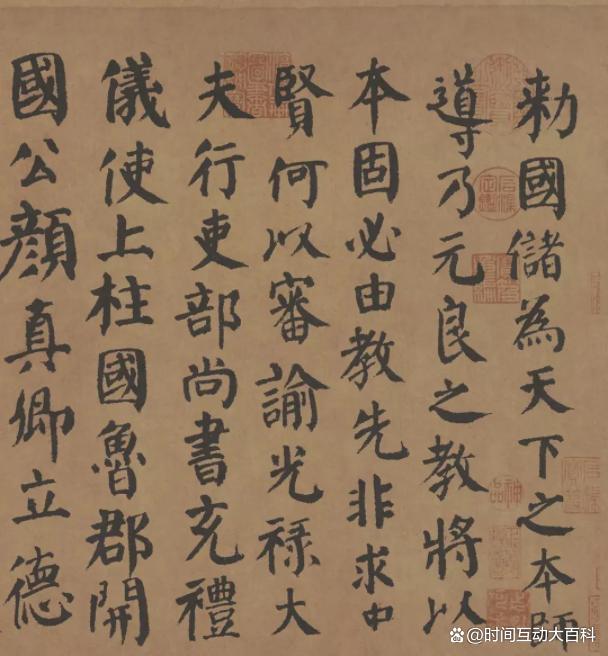 勑國儲為天下之本師
導乃元良之教將以
本固必由教先非求中
賢何以審諭光祿大
夫行吏部尚書充禮
儀使上柱國魯郡開
國公顏真卿立德
神品
@时间互动大百科